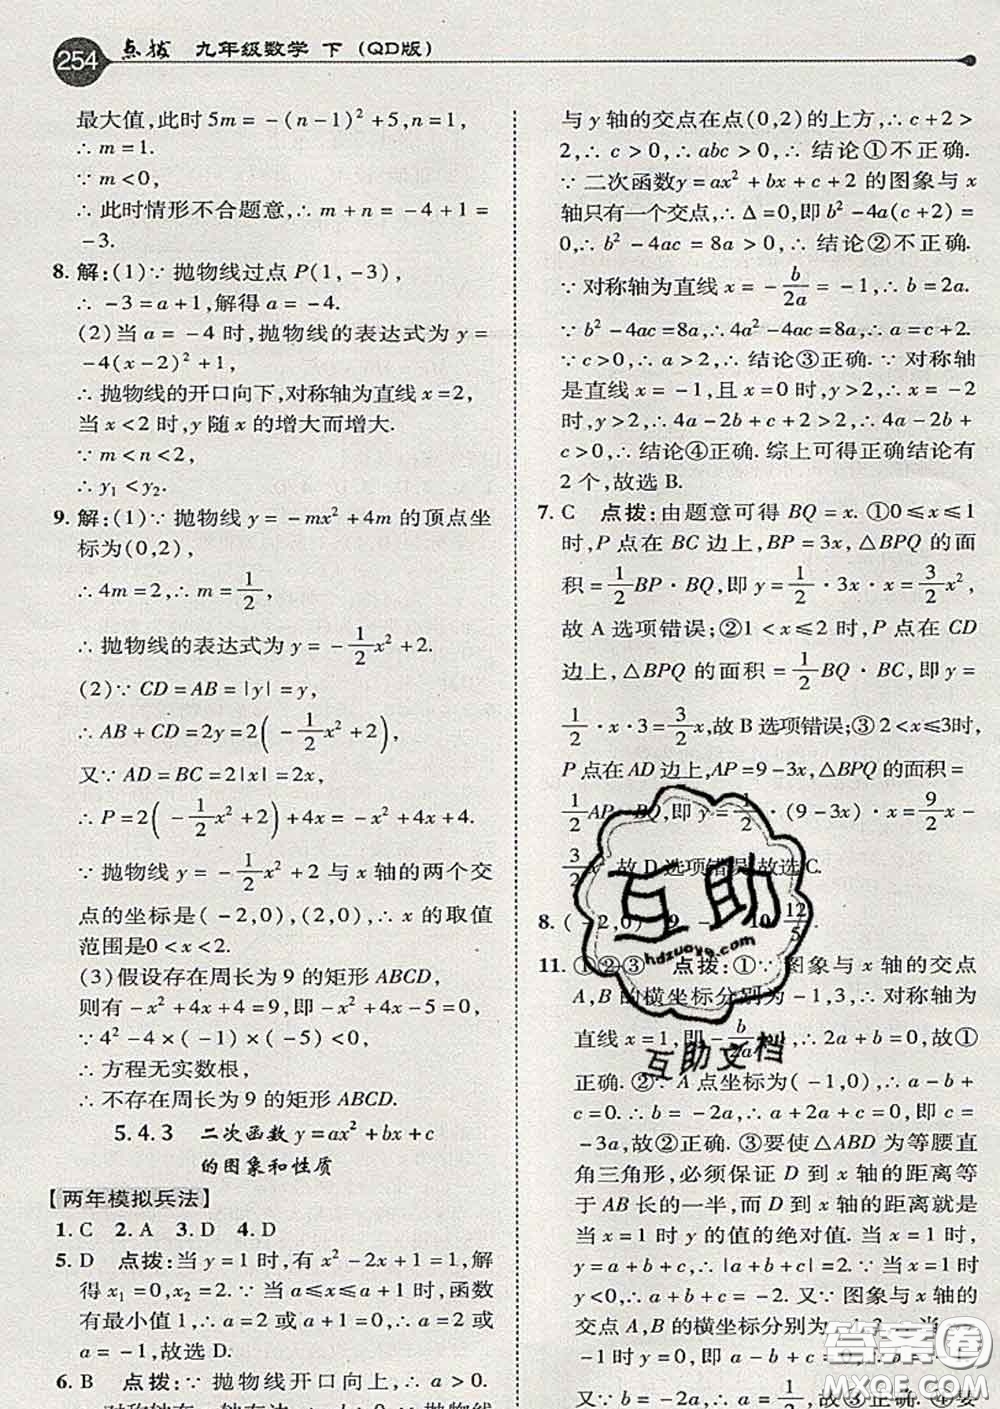 254 点拨 九年级数学 下（QD版）
最大值,此时 5m = -(n-1)² + 5,n = 1,
∴ m = 1.
∵ m < 0,
∴ 此时情形不合题意,∴ m + n = -4 + 1 =
-3.
8. 解:(1)∵ 抛物线过点 P(1, -3),
∴ -3 = a + 1,解得 a = -4.
(2)当 a = -4 时,抛物线的表达式为 y =
-4(x-2)² + 1,
∴ 抛物线的开口向下,对称轴为直线 x = 2,
当 x < 2 时,y 随 x 的增大而增大.
∵ m < n < 2,
∴ y₁ < y₂.
9. 解:(1)∵ 抛物线 y = -mx² + 4m 的顶点坐
标为(0,2),
∴ 4m = 2,∴ m = 1/2,
∴ 抛物线的表达式为 y = -1/2 x² + 2.
(2)∵ CD = AB = |y| = y,
∴ AB + CD = 2y = 2(-1/2 x² + 2),
又∵ AD = BC = 2|x| = 2x,
∴ P = 2(-1/2 x² + 2) + 4x = -x² + 4x + 4.
∵ 抛物线 y = -1/2 x² + 2 与 x 轴的两个交
点的坐标是(-2,0),(2,0),∴ x 的取值
范围是0 < x < 2.
(3)假设存在周长为 9 的矩形 ABCD,
则有 -x² + 4x + 4 = 9,∴ -x² + 4x - 5 = 0,
∵ 4² - 4 × (-1) × (-5) < 0,
∴ 方程无实数根,
∴ 不存在周长为 9 的矩形 ABCD.
5.4.3 二次函数 y = ax² + bx + c
的图象和性质
【两年模拟兵法】
1. C 2. A 3. D 4. D
5. D 点拨:当 y = 1 时,有 x² - 2x + 1 = 1,解
得 x₁ = 0,x₂ = 2.∵ 当 a ≤ x ≤ a + 1 时,函数
有最小值 1,∴ a = 2 或 a + 1 = 0,∴ a = 2 或
a = -1,故选 D.
6. B 点拨:∵ 抛物线开口向上,∴ a > 0.
与 y 轴的交点在点(0,2)的上方,∴ c + 2 >
2,∴ c > 0,∴ abc > 0,∴ 结论①不正确.
∵ 二次函数y = ax² + bx + c + 2 的图象与 x
轴只有一个交点,∴ Δ = 0,即 b² - 4a(c + 2) =
0,∴ b² - 4ac = 8a > 0,∴ 结论②不正确.
∵ 对称轴为直线 x = -b/2a = -1,∴ b = 2a.
∵ b² - 4ac = 8a,∴ 4a² - 4ac = 8a,∴ a = c + 2.
∵ c > 0,∴ a > 2,∴ 结论③正确.∵ 对称轴
是直线 x = -1,且 x = 0 时,y > 2,∴ x = -2
时,y > 2,∴ 4a - 2b + c + 2 > 2,∴ 4a - 2b +
c > 0,∴ 结论④正确.综上可得正确结论有
2 个,故选 B.
7. C 点拨:由题意可得 BQ = x.①0 ≤ x ≤ 1
时,P 点在 BC 边上,BP = 3x,△BPQ 的面
积 = 1/2 BP · BQ,即 y = 1/2 · 3x · x = 3/2 x²,
故 A 选项错误;②1 < x ≤ 2 时,P 点在 CD
边上,△BPQ 的面积 = 1/2 BQ · BC,即 y =
1/2 · x · 3 = 3/2 x,故 B 选项错误;③2 < x ≤ 3时,
P 点在 AD 边上,AP = 9 - 3x,△BPQ 的面积 =
1/2 AP · BQ,即 y = 1/2 · (9 - 3x) · x = 9/2 x -
3/2 x²,故 D 选项错误.故选 C.
8. (-2,0) 9. 10. 12/5
11. ①②③ 点拨:①∵ 图象与 x 轴的交点
A,B 的横坐标分别为 -1,3,∴ 对称轴为
直线 x = 1,即 -b/2a = 1,∴ 2a + b = 0,故①
正确.②∵ A 点坐标为(-1,0),∴ a - b +
c = 0.∵ b = -2a,∴ a + 2a + c = 0,即 c =
-3a,故②正确.③要使△ABD 为等腰直
角三角形,必须保证 D 到 x 轴的距离等
于 AB 长的一半,而 D 到 x 轴的距离就是
当 x = 1 时 y 的值的绝对值.当 x = 1 时,
y = a + b + c,∴ |a + b + c| = 2.∵ 当 x = 1 时
y < 0,∴ a + b + c = -2.又∵ 图象与 x 轴的
交点 A,B 的横坐标分别为 -1,3,∴ 当 x =
-1 时 y = 0,即 a - b + c = 0,
又∵ b = -2a,∴ a = 1/2,故③正确.④要
互助
hdzuoye.com
互助文档
答案圈
MXQE.COM